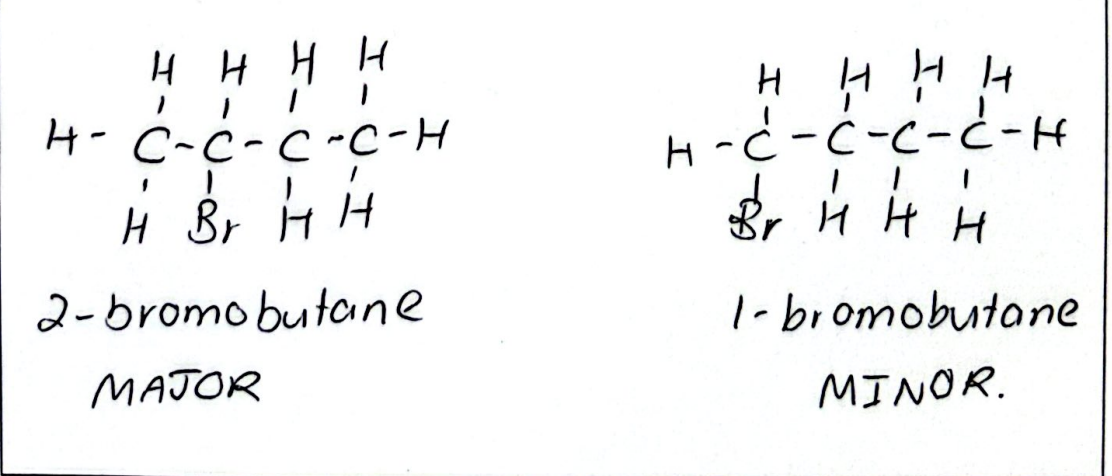 H H H H
H - C - C - C - C - H
H Br H H
2-bromobutane
MAJOR
H H H H
H - C - C - C - C - H
Br H H H
1-bromobutane
MINOR.